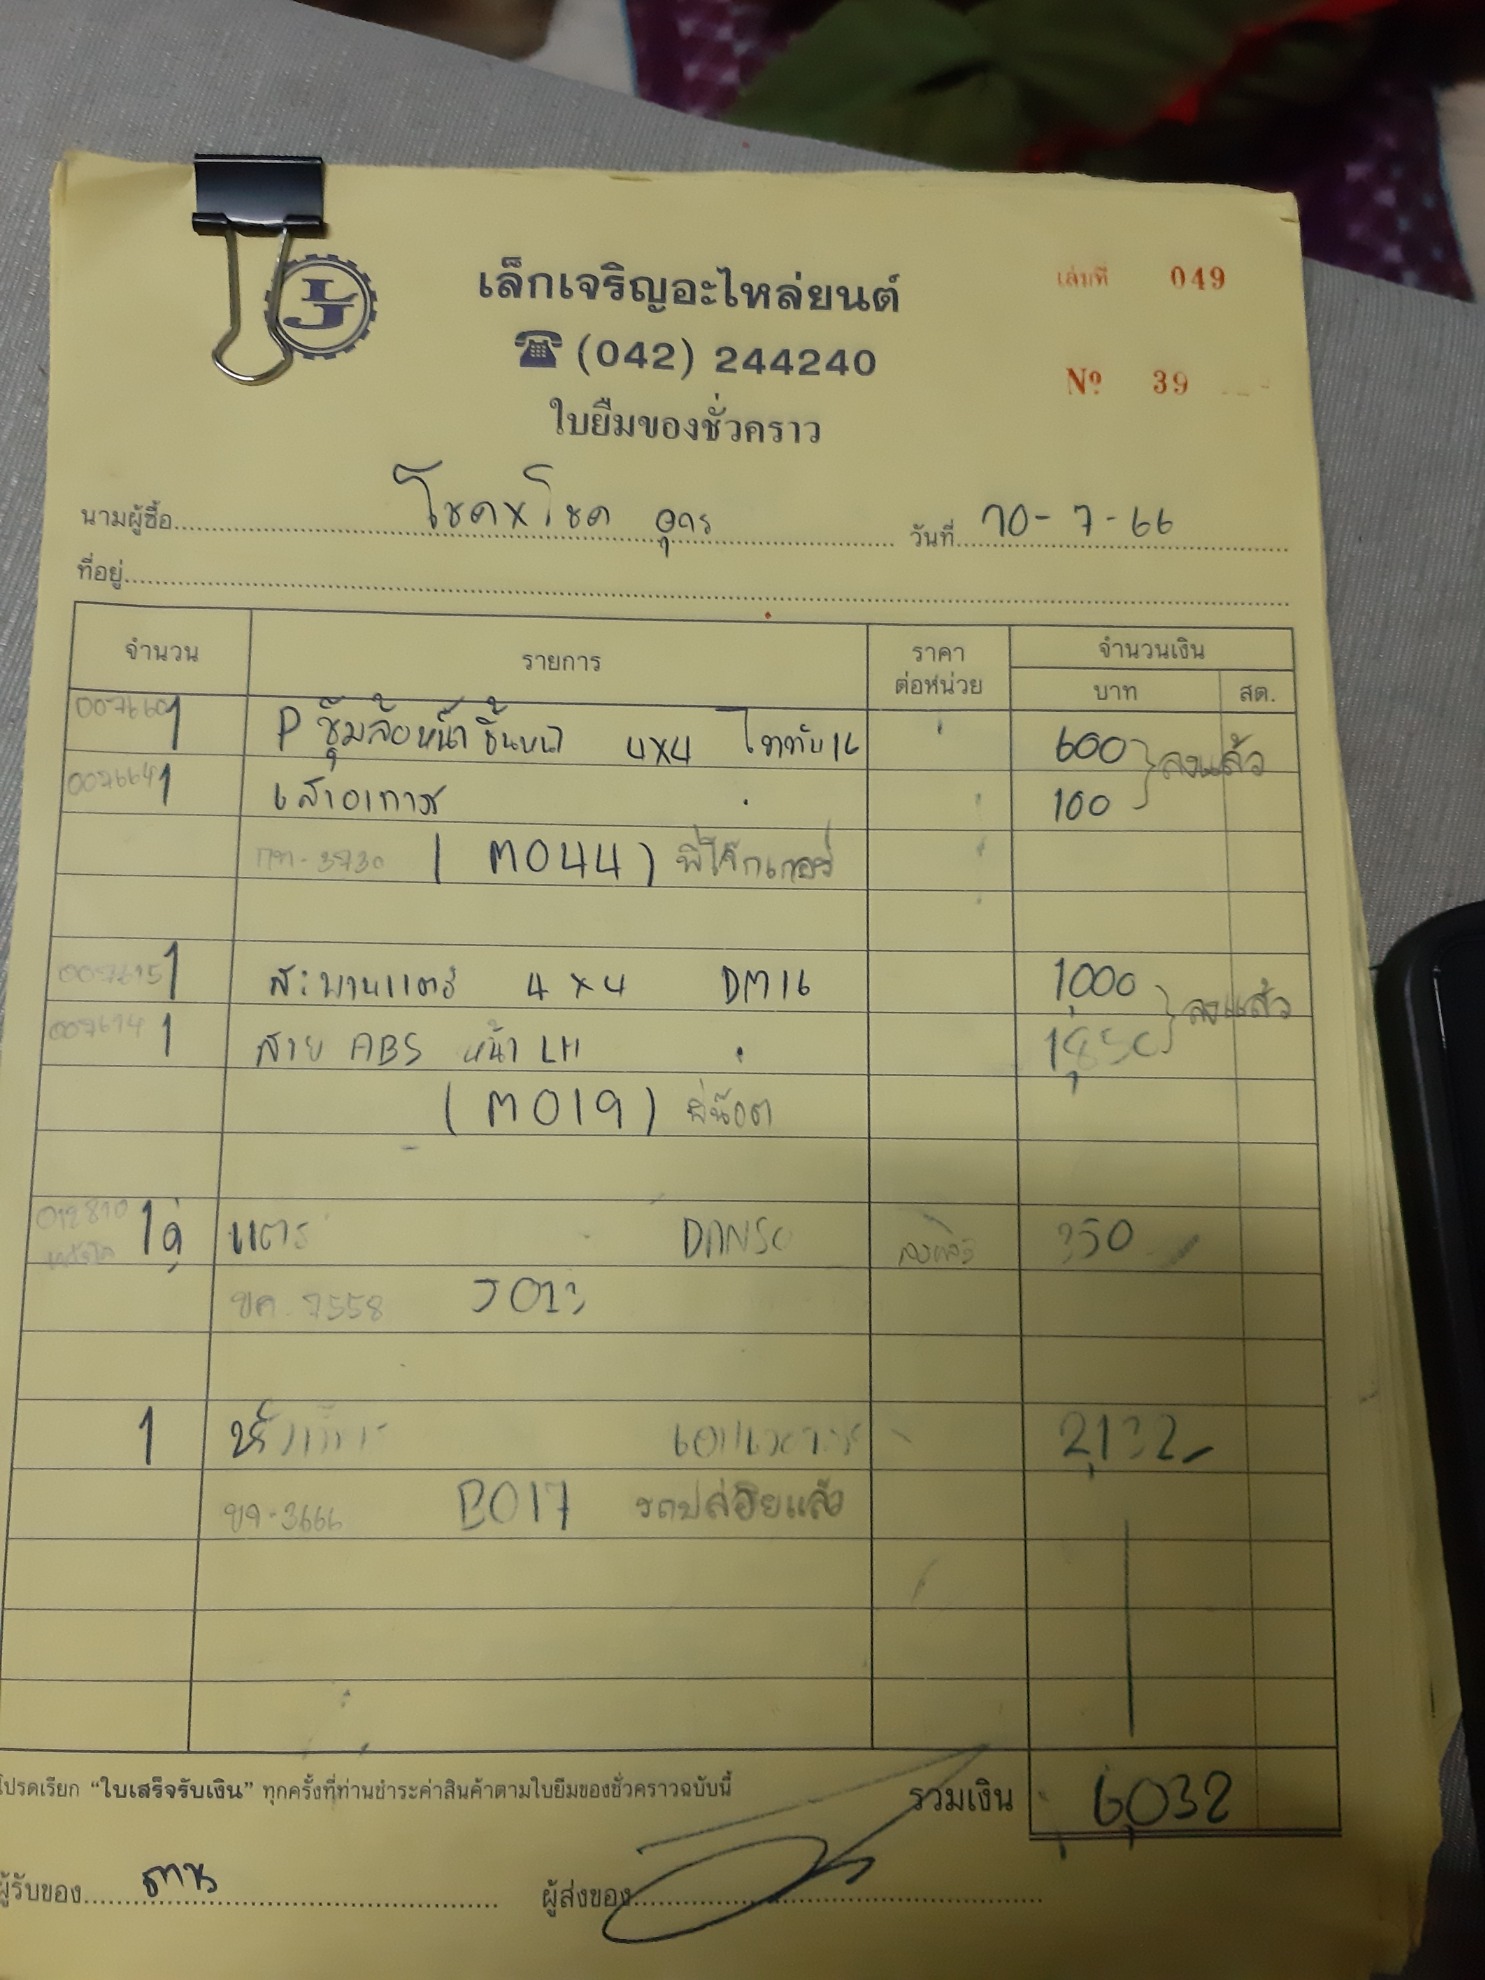 LJ
เล็กเจริญอะไหล่ยนต์
เล่มที่ 049
(042) 244240
Nº 39
ใบยืมของชั่วคราว
นามผู้ซื้อ โชคxโชค อุดร วันที่ 10-7-66
ที่อยู่
จำนวน รายการ ราคาต่อหน่วย จำนวนเงิน
บาท สต.
1 P ซุ้มล้อหน้าชิ้นหน้า 4x4 ไททัน16 600 ลงแล้ว
1 เสาอากาศ 100
กท-3730 (M044) พี่โจ๊กเกอร์
007615 1 สะพานแตร 4x4 DM16 1000 ลงแล้ว
007614 1 สาย ABS หน้า LH 1,850
(M019) พี่น๊อต
012810 1คู่ แตร DANSO ลงแล้ว 350
ขค-7558 J013
1 2,132
3666 B017 รถปล่อยแล้ว
โปรดเรียก "ใบเสร็จรับเงิน" ทุกครั้งที่ท่านชำระค่าสินค้าตามใบยืมของชั่วคราวฉบับนี้ รวมเงิน 6,032
ผู้รับของ ผู้ส่งของ